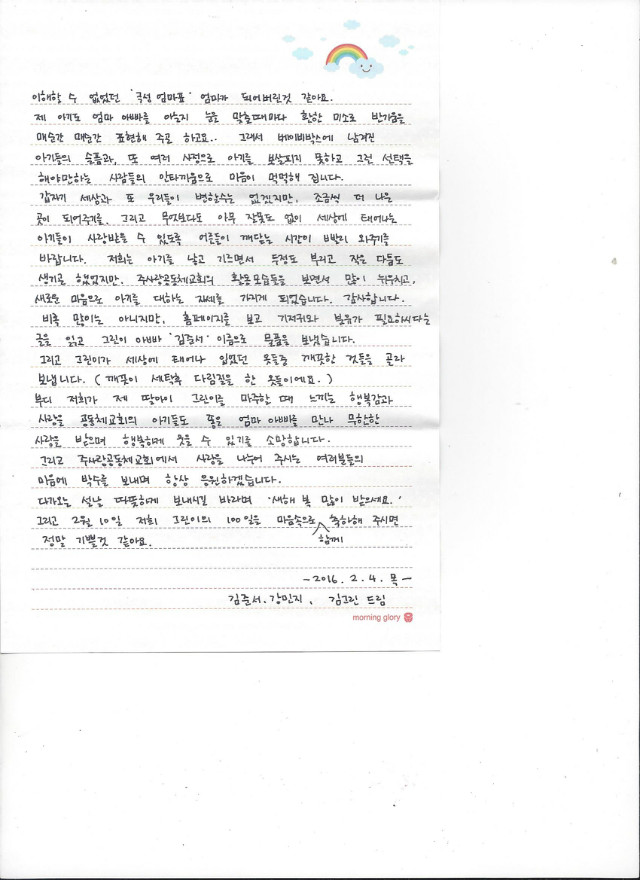 이해할 수 없었던 '극성 엄마표' 엄마가 되어버린것 같아요.
제 아기도 엄마 아빠를 아는지 눈을 맞출때마다 환한 미소로 반가움을
매순간 매순간 표현해 주곤 하고요.. 그래서 베이비박스에 남겨진
아기들의 슬픔과, 또 여러 사정으로 아기를 보살피지 못하고 그런 선택을
해야만하는 사람들의 안타까움으로 마음이 먹먹해 집니다.
갑자기 세상과 또 우리들이 변할수는 없겠지만, 조금씩 더 나은
곳이 되어주기를, 그리고 무엇보다도 아무 잘못도 없이 세상에 태어나는
아기들이 사랑받을 수 있도록 어른들이 깨닫는 시간이 빨리 와주기를
바랍니다. 저희는 아기를 낳고 기르면서 투정도 부리고 작은 다툼도
생기곤 했었지만, 주사랑공동체교회의 활동모습들을 보면서 많이 뉘우치고,
새로운 마음으로 아기를 대하는 자세를 가지게 되었습니다. 감사합니다.
비록 많이는 아니지만, 홈페이지를 보고 기저귀와 분유가 필요하시다는
글을 읽고 그린이 아빠 "김준서" 이름으로 물품을 보냈습니다.
그리고 그린이가 세상에 태어나 입었던 옷들중 깨끗한 것들을 골라
보냅니다. (깨끗이 세탁후 다림질을 한 옷들이에요.)
부디 저희가 제 딸아이 그린이를 마주할 때 느끼는 행복감과
사랑을 공동체교회의 아기들도 좋은 엄마 아빠를 만나 무한한
사랑을 받으며 행복하게 웃을 수 있기를 소망합니다.
그리고 주사랑공동체교회에서 사랑을 나누어 주시는 여러분들의
마음에 박수를 보내며 항상 응원하겠습니다.
다가오는 설날 따뜻하게 보내시길 바라며 '새해 복 많이 받으세요.'
그리고 2월 10일 저희 그린이의 100일을 마음속으로 함께 축하해 주시면
정말 기쁠것 같아요.
-2016. 2. 4. 목-
김준서.강민지, 김그린 드림
morning glory